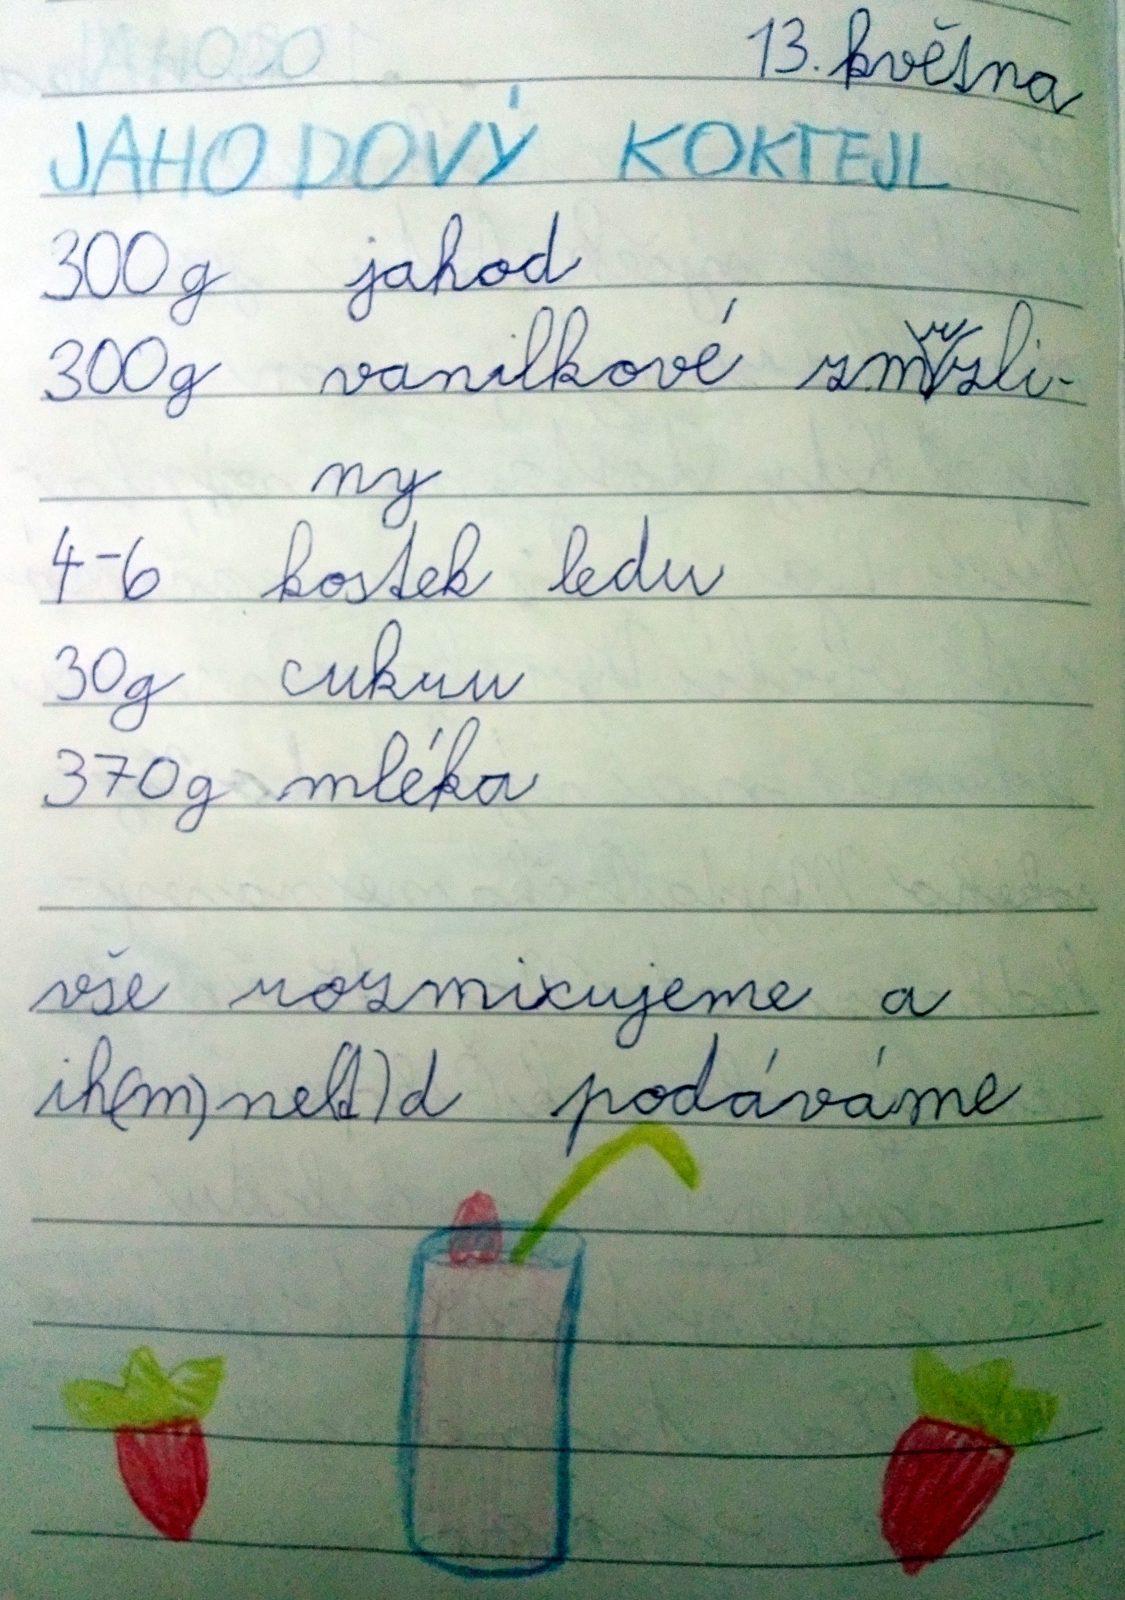 13. května
JAHODOVÝ KOKTEJL
300g jahod
300g vanilkové zmrzli-
ny
4-6 kostek ledu
30g cukru
370g mléka
vše rozmixujeme a
ih(m)ne(t)d podáváme